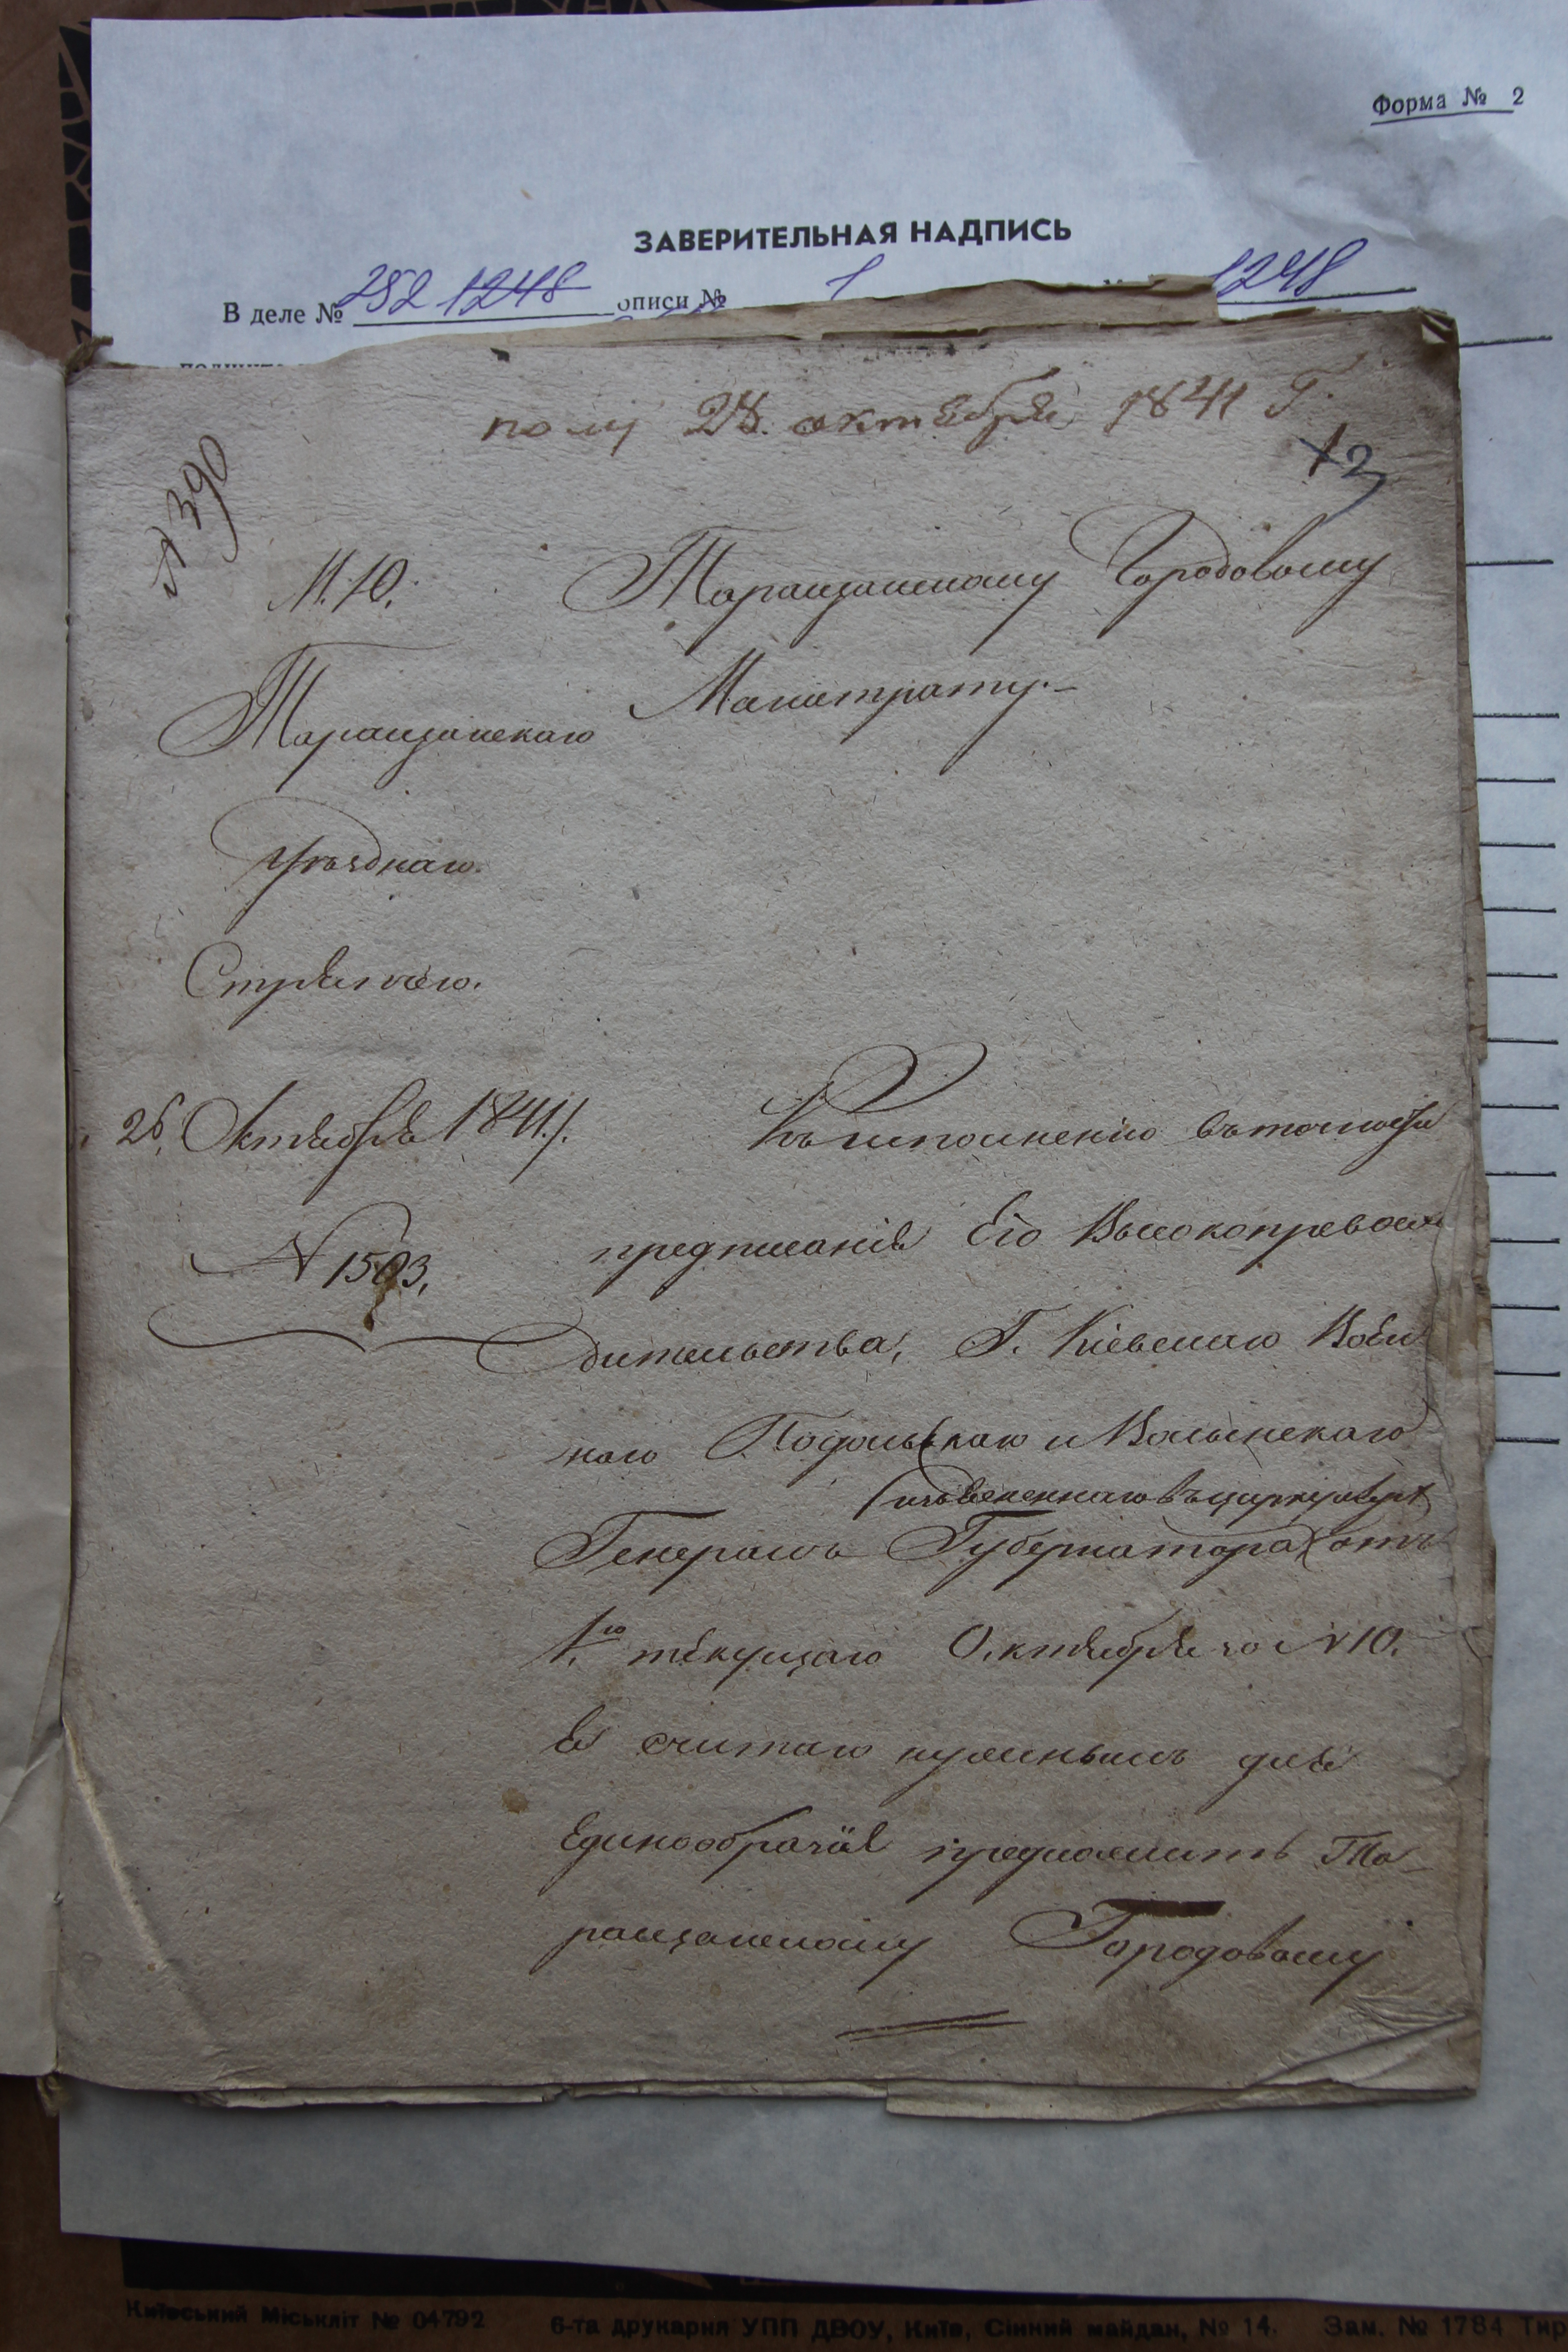 Форма № 2
ЗАВЕРИТЕЛЬНАЯ НАДПИСЬ
В деле № 252 1248 описи № 1 1248
полу 28 октября 1841 Г.
№ 390
М. Ю.
Таращанскому Городовому
Магистрату.-
Таращанскаго
Уѣзднаго
Стряпчаго.
26, Октября 1841. г.
№ 1503,
Къ исполненію въ точности
предписанія Его Высокопревосхо
дительства, Г. Кіевскаго Воен
наго Подольскаго и Волынскаго
изъясненнаго въ циркулярѣ
Генералъ Губернатора отъ
1.го текущаго Октября за № 10.
я считаю нужнымъ для
Единообразія предложить Та-
ращанскому Городовому
Київський Міськліт № 04792 6-та друкарня УПП ДВОУ, Київ, Сінний майдан, № 14. Зам. № 1784 Тир